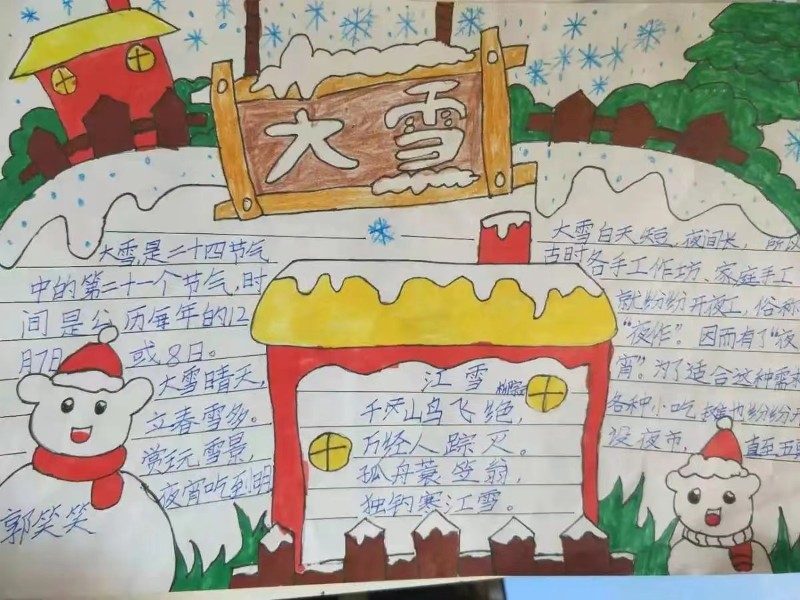 大雪
大雪是二十四节气
中的第二十一个节气,时
间是公历每年的12
月7日 或8日。
大雪晴天,
立春雪多。
赏玩雪景,
夜宵吃到明
郭笑笑
江雪
千山鸟飞绝,
万径人踪灭。
孤舟蓑笠翁,
独钓寒江雪。
大雪白天短,夜间长,所以
古时各手工作坊、家庭手工
就纷纷开夜工,俗称
"夜作"。因而有了"夜
宵"。为了适合这种需
各种小吃摊也纷纷
设夜市,直至五